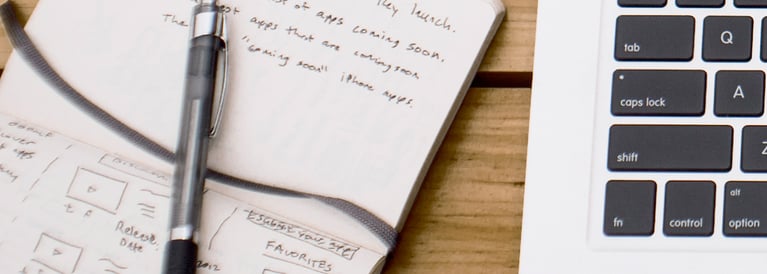 they launch.
st of apps coming soon.
The est apps that are coming soon
"coming soon" iphone apps.
apps
Release
Date
2012
FAVORITES
tab
Q
caps lock
A
shift
Z
fn
control
alt
option